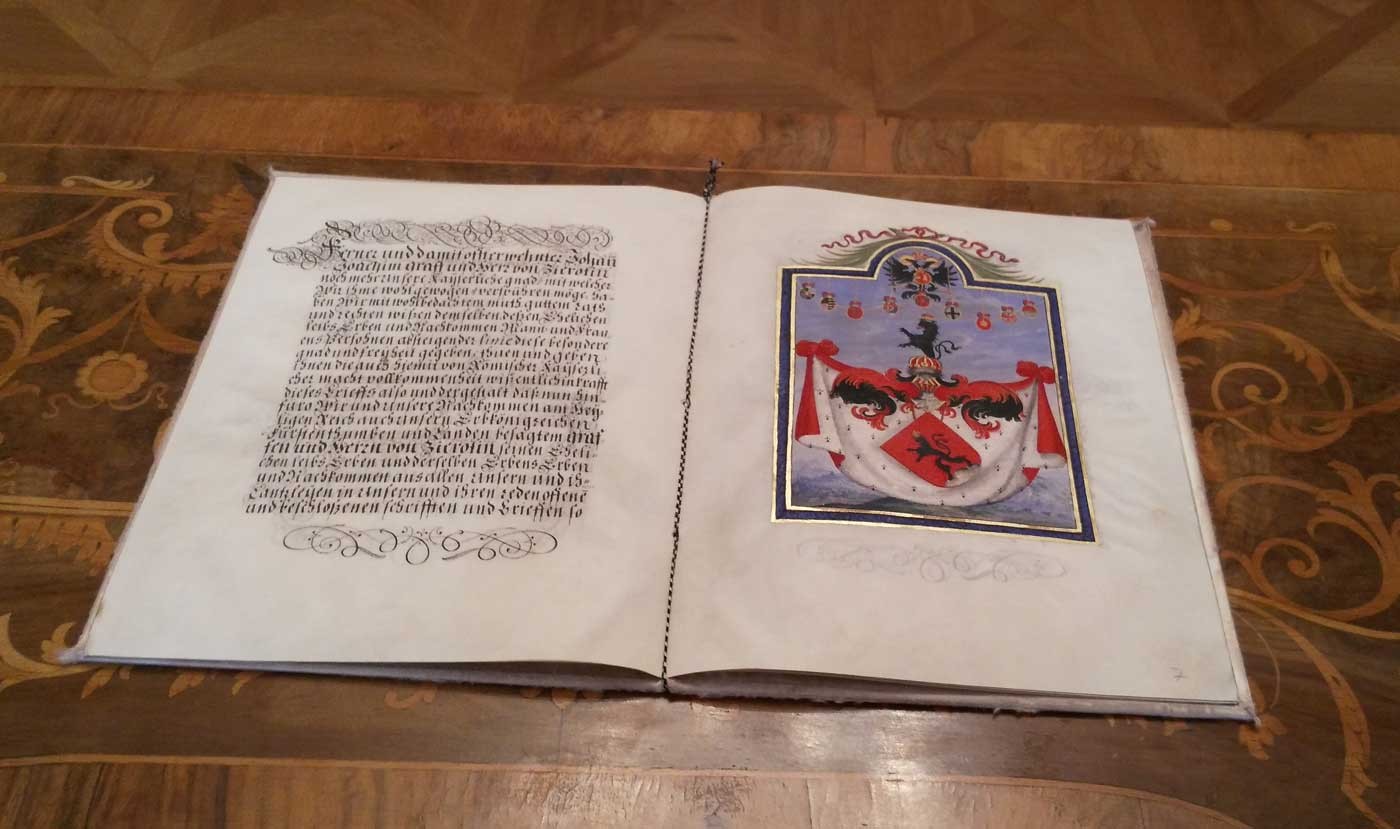 Ferner und damit offterwehnter Johan
Joachim graff und Herr von Zierotin
noch mehr Unsere Kayserliche gnad, mit welcher
Wir ihme wohlgewogen, verspühren möge, ha-
ben Wir mit wohlbedachtem muth, gutten Rath
und rechten wißen demselben, deßen Ehelichen
leibs Erben und Nachkommen Mann und Frau
ens Persohnen absteigender Linie diese besondere
gnad und freyheit gegeben, thuen und geben
ihnen die auch hiemit von Römischer Kayser
licher macht vollkommenheit wißentlich in krafft
dieses brieffs also und dergestalt daß nun hin
füro Wir und Unsere Nachkommen am Hey-
ligen Reich auch Unsern Erbkönigreichen
Fürstenthumben und Landen besagtem graf
fen und Herrn von Zierotin seinen Eheli-
chen leibs Erben und derselben Erbens Erben
und Nachkommen aus allen Unsern und ih-
Cantzleyen in Unsern und ihren reden offene
und beschloßenen schrifften und brieffen so
7